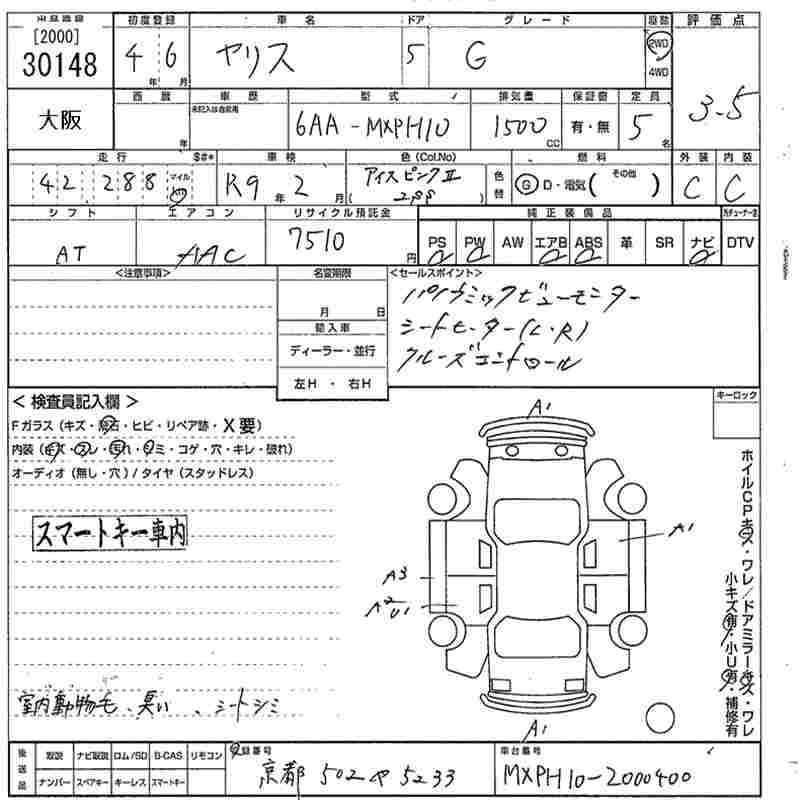 [2000]
30148
大阪
初度登録
4 年 6 月
車名
ヤリス
ドア
5
グレード
G
駆動
2WD
4WD
評価点
3.5
西暦
年
車歴
未記入は自家用
型式
6AA-MXPH10
排気量
1500
CC
保証書
有・無
定員
5名
走行
$#*
42,288
マイル
km
車検
R9年2月
色(Col.No)
アイスピンクⅡ
( 2PS )
色替
燃料
G D・電気( その他 )
外装
C
内装
C
シフト
AT
エアコン
AAC
リサイクル預託金
7510
円
純正装備品
PS PW AW エアB ABS 革 SR ナビ
DTV
<注意事項>
名変期限
月 日
輸入車
ディーラー・並行
左H ・ 右H
<セールスポイント>
パノラミックビューモニター
シートヒーター(L・R)
クルーズコントロール
<検査員記入欄>
Fガラス(キズ・飛石・ヒビ・リペア跡・X要)
内装(キズ・スレ・汚れ・シミ・コゲ・穴・キレ・破れ)
オーディオ(無し・穴)/タイヤ(スタッドレス)
スマートキー車内
室内動物毛、臭い、シートシミ
キーロック
A1
A1
A3
A2
U1
A1
ホイルCPキズ・ワレ/ドアミラーキズ・ワレ
小キズ有・小U有・補修有
後送品
取説 ナビ取説 ロム/SD B-CAS リモコン
ナンバー スペアキー キーレス スマートキー
登録番号
京都 502 や 5233
車台番号
MXPH10-2000400